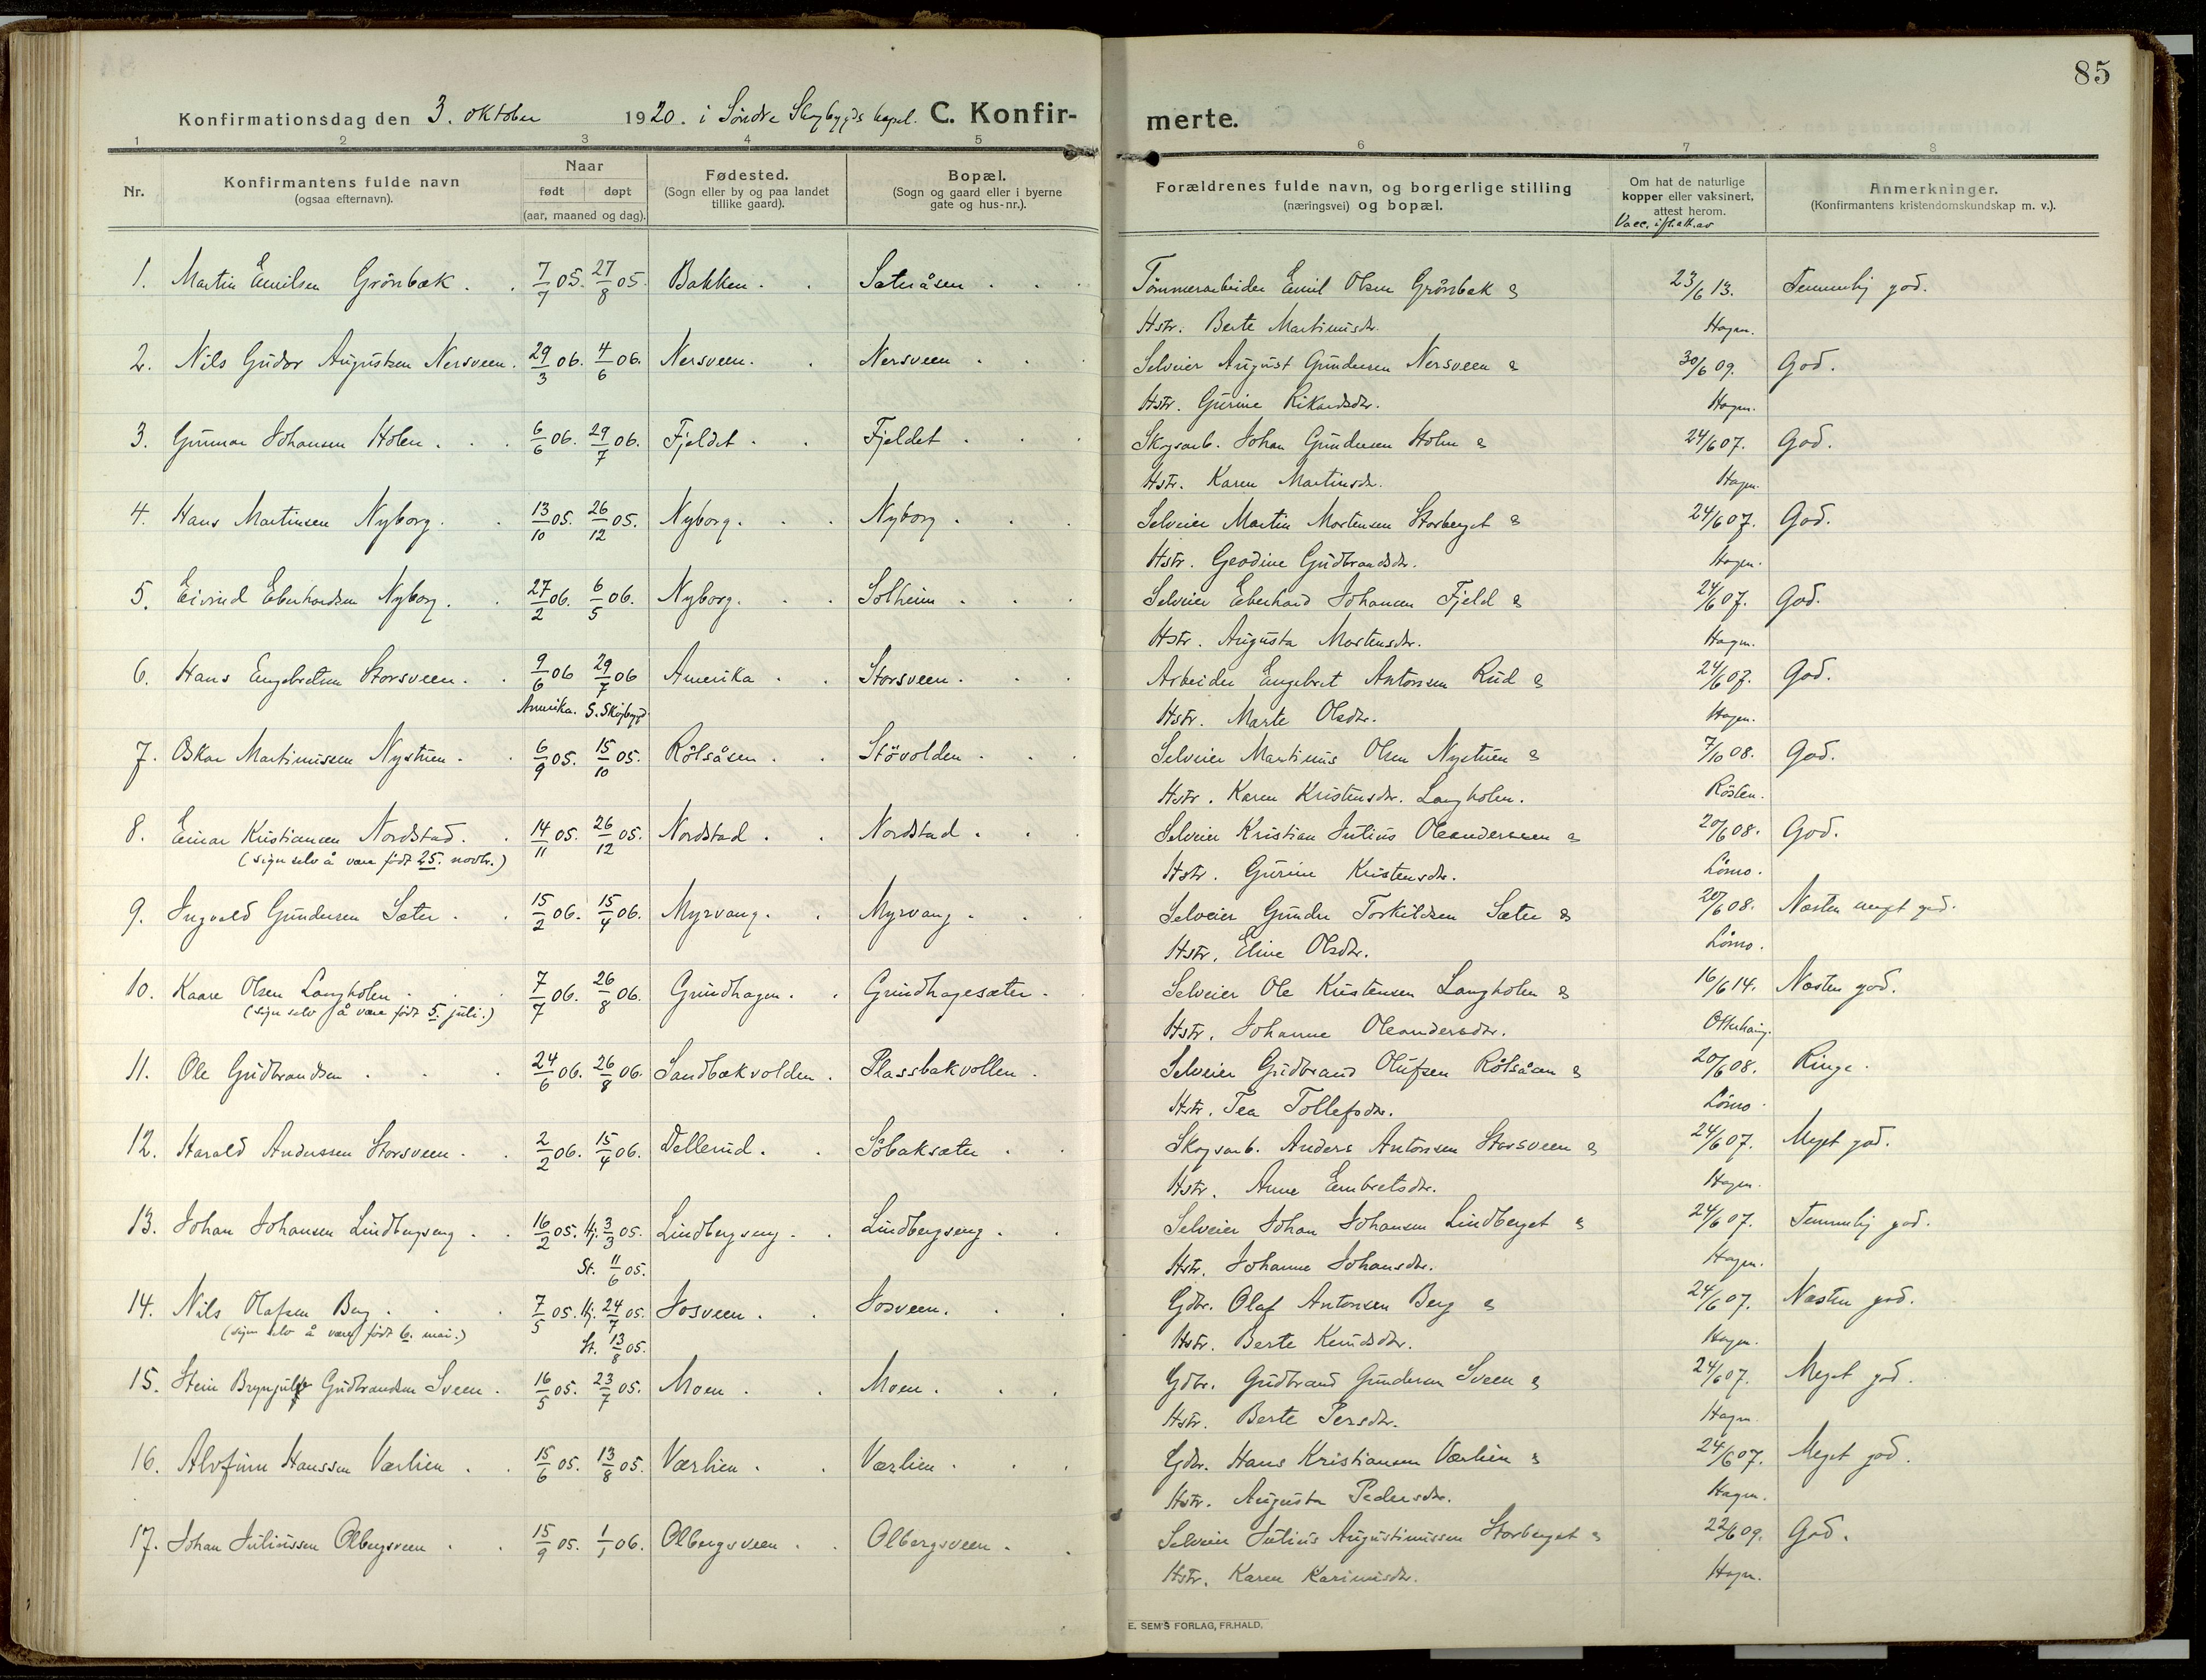 85
Konfirmationsdag den 3. oktober 1920. i Söndre Skogbygds kapel. C. Konfirmerte.
1 2 3 4 5 6 7 8
Nr. Konfirmantens fulde navn (ogsaa efternavn). Naar født døpt (aar, maaned og dag). Fødested. (Sogn eller by og paa landet tillike gaard). Bopæl. (Sogn og gaard eller i byerne gate og hus-nr.). Forældrenes fulde navn, og borgerlige stilling (næringsvei) og bopæl. Om hat de naturlige kopper eller vaksinert, attest herom. Anmerkninger. (Konfirmantens kristendomskundskap m. v.).
Vacc. ifl. att. av
1. Martin Emilsen Grönbæk. 7/7 05. 27/8 05. Bakken. Säteråsen. Tömmerarbeider Emil Olsen Grönbæk & 23/6 13. Temmelig god.
Hstr. Berte Martinusdr. Hagen.
2. Nils Gudor Augustsen Nersveen. 29/3 06. 4/6 06. Nersveen. Nersveen. Selveier August Gundersen Nersveen & 30/6 09. God.
Hstr. Gurine Rikardsdr. Hagen.
3. Gunnar Johansen Holen. 6/6 06. 29/7 06. Fjeldet. Fjeldet. Skogsarb. Johan Gundersen Holen & 24/6 07. God.
Hstr. Karen Martinsdr. Hagen.
4. Hans Martinsen Nyborg. 13/10 05. 26/12 05. Nyborg. Nyborg. Selveier Martin Mortensen Storberget & 24/6 07. God.
Hstr. Geodine Gudbrandsdr. Hagen.
5. Eivind Eberhardsen Nyborg. 27/2 06. 6/5 06. Nyborg. Solheim. Selveier Eberhard Johansen Fjeld & 24/6 07. God.
Hstr. Augusta Mortensdr. Hagen.
6. Hans Engebretsen Storsveen. 9/6 06 29/7 06 Amerika. Storsveen. Arbeider Engebret Antonsen Rud & 24/6 07. God.
Amerika. S. Skogbygd. Hstr. Marte Olsdr. Hagen.
7. Oskar Martinussen Nystuen. 6/9 05. 15/10 05. Rölsåsen. Stövolden. Selveier Martinus Olsen Nystuen & 7/10 08. God.
Hstr. Karen Kristensdr. Langholen. Rösten.
8. Einar Kristiansen Nordstad. 14/11 05. 26/12 05. Nordstad. Nordstad. Selveier Kristian Julius Oleanderssen & 20/6 08. God.
(siger selv å være födt 25. novbr.) Hstr. Gurine Kristensdr. Lömo.
9. Ingvald Gundersen Sæter. 15/2 06. 15/4 06. Myrvang. Myrvang. Selveier Gunder Torkildsen Sæter & 20/6 08. Næsten meget god.
Hstr. Eline Olsdr. Lömo.
10. Kaare Olsen Langholen. 7/7 06. 26/8 06. Grundhagen. Grundhagesæter. Selveier Ole Kristensen Langholen & 16/6 14. Næsten god.
(siger selv å være födt 5. juli.) Hstr. Johanne Oleandersdr.
11. Ole Gudbrandsen. 24/6 06. 26/8 06. Sandbækvolden. Plassbakvollen. Selveier Gudbrand Olufsen Rölsåsen & 20/6 08. Ringe.
Hstr. Tea Tollefsdr. Lömo.
12. Harald Anderssen Storsveen. 2/2 06. 15/4 06. Dellerud. Söbaksæter. Skogsarb. Anders Antonsen Storsveen & 24/6 07. Meget god.
Hstr. Anne Embretsdr. Hagen.
13. Johan Johansen Lindbergseng. 16/2 05. Hj. 3/3 05. Lindbergseng. Lindbergseng. Selveier Johan Johansen Lindberget & 24/6 07. Temmelig god.
St. 11/6 05. Hstr. Johanne Johansdr. Hagen.
14. Nils Olafsen Berg. 7/5 05. Hj. 24/7 05. Josveen. Josveen. Gdbr. Olaf Antonsen Berg & 24/6 07. Næsten god.
(siger selv å være födt 6. mai.) St. 13/8 05. Hstr. Berte Knudsdr. Hagen.
15. Stein Brynjulf Gudbrandsen Sveen. 16/5 05. 23/7 05. Moen. Moen. Gdbr. Gudbrand Gundersen Sveen & 24/6 07. Meget god.
Hstr. Berte Persdr. Hagen
16. Alvfinn Hanssen Værlien. 15/6 05. 13/8 05. Værlien. Værlien. Gdbr. Hans Kristiansen Værlien & 24/6 07. Meget god.
Hstr. Augusta Pedersdr. Hagen.
17. Johan Juliussen Olbergsveen. 15/9 05. 1/1 06. Olbergsveen. Olbergsveen. Selveier Julius Augustinussen Storberget & 22/6 09. God.
Hstr. Karen Karinusdr. Hagen.
E. SEM'S FORLAG, FR.HALD.